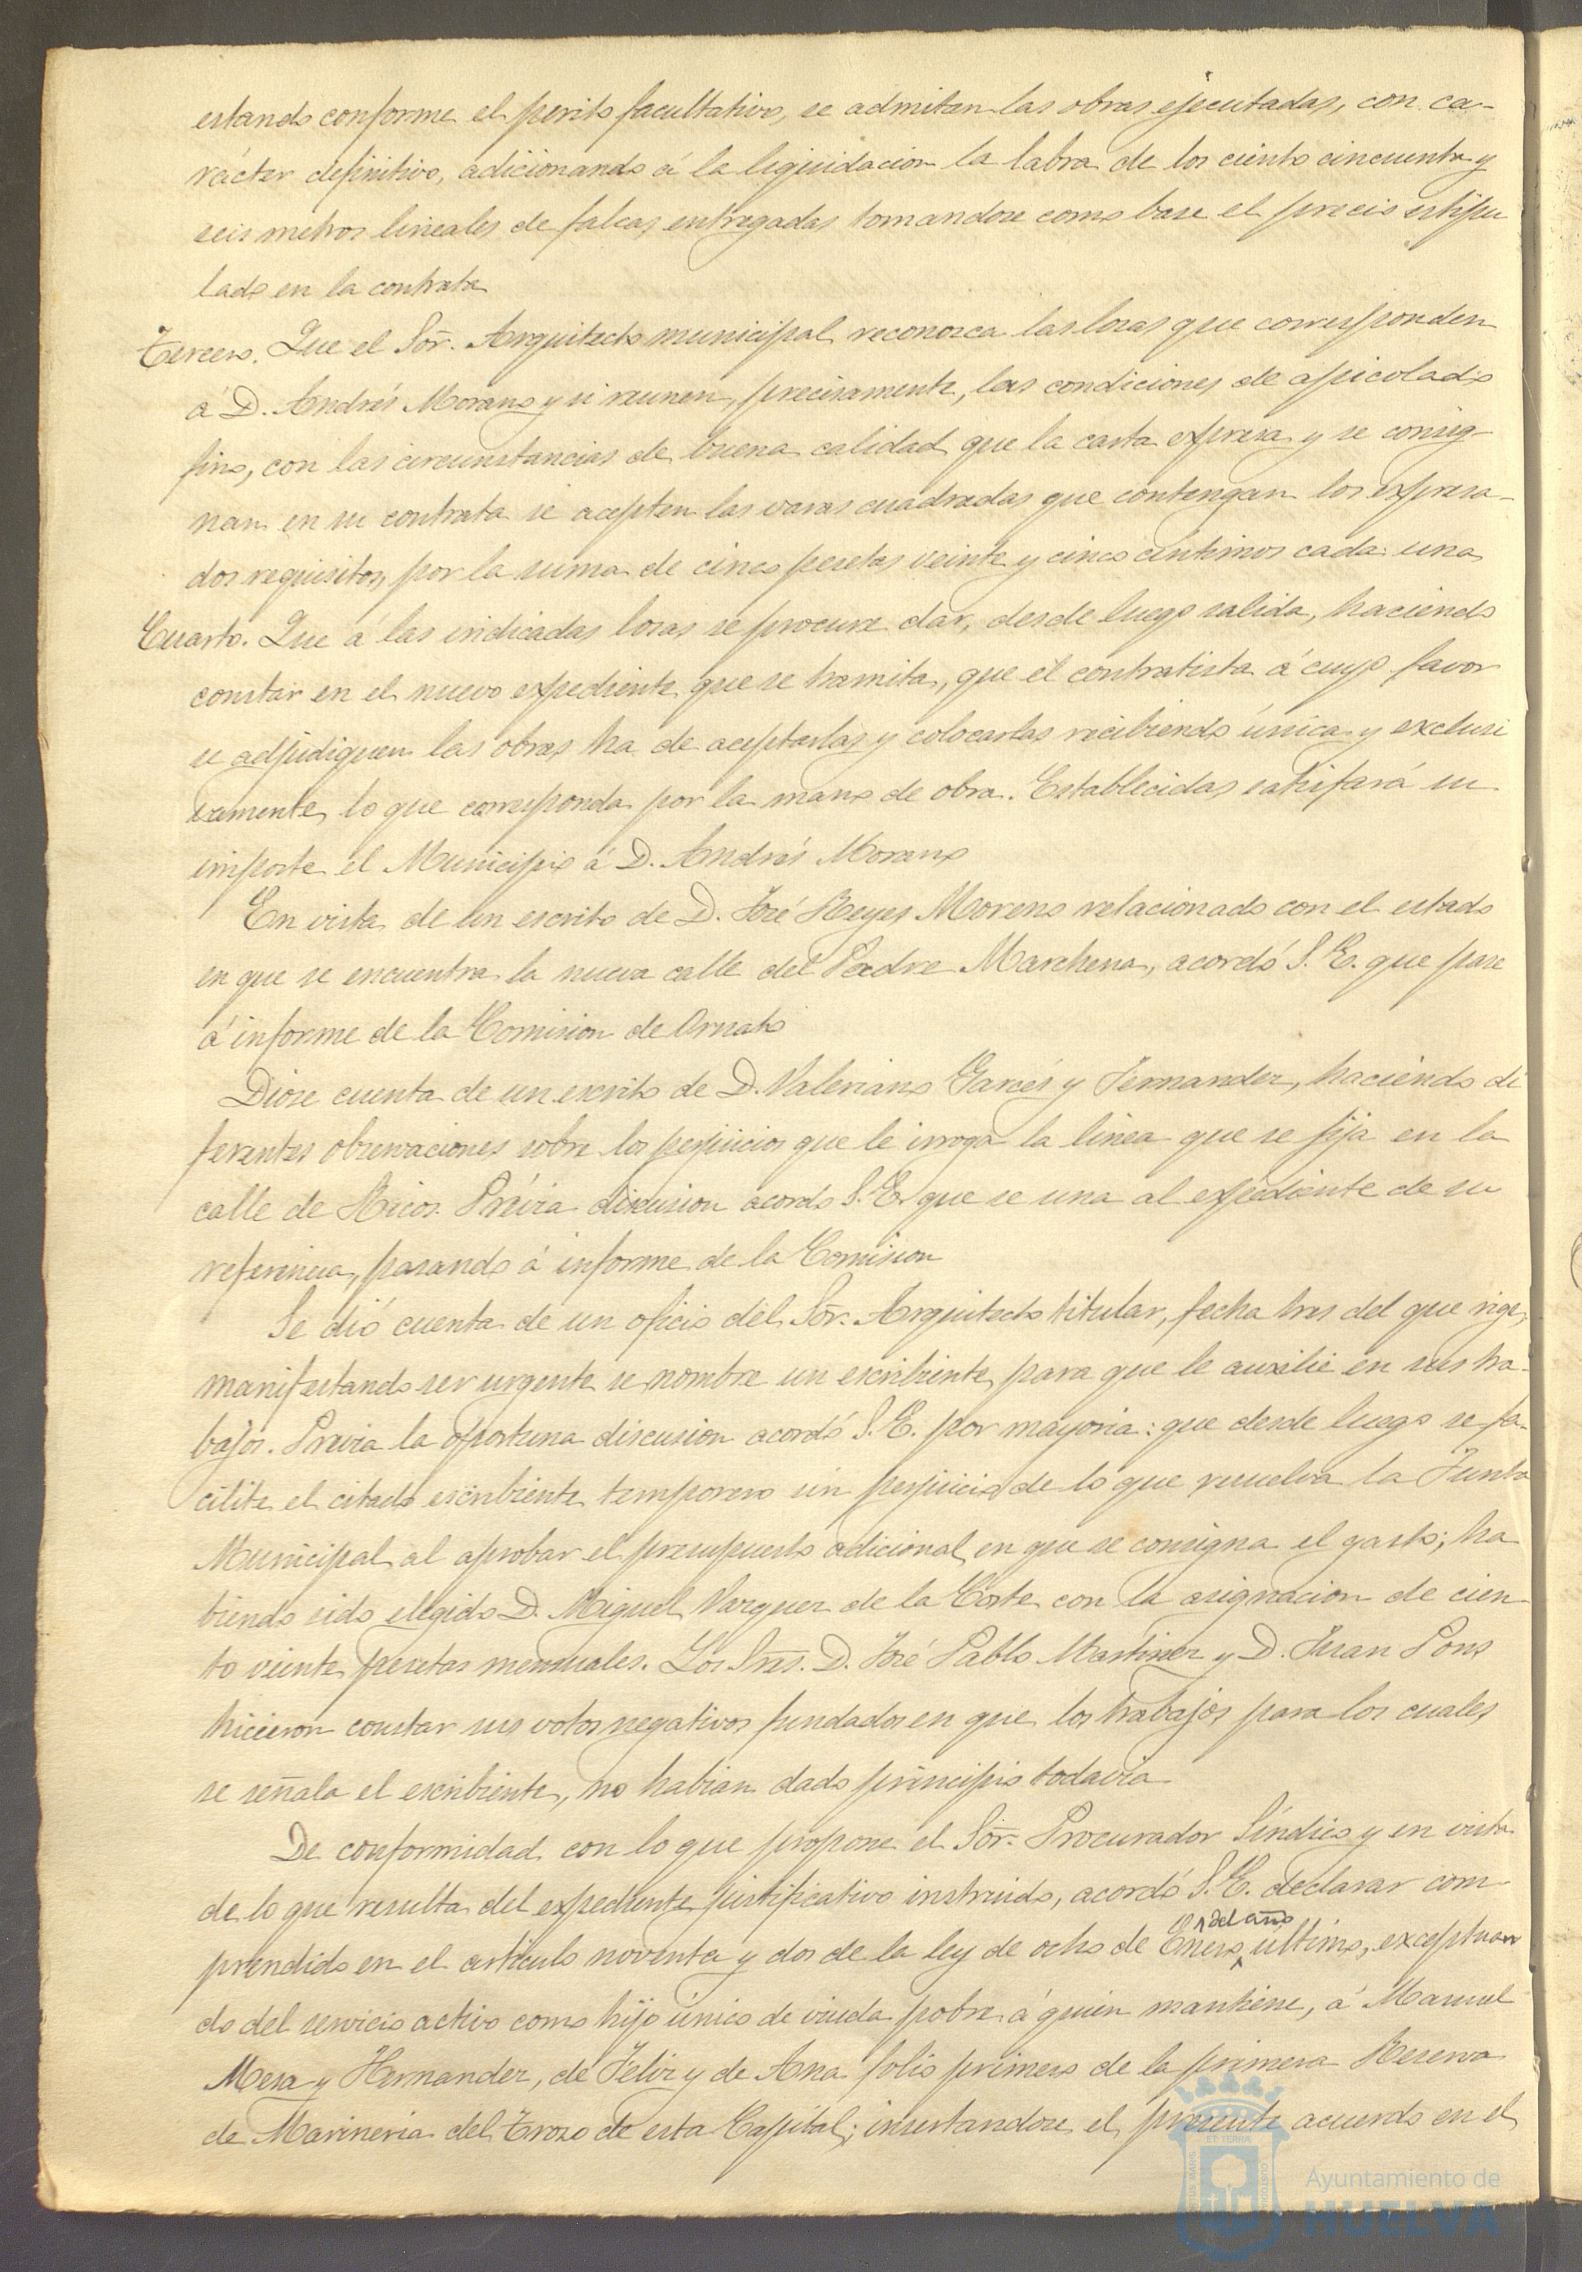 estando conforme el perito facultativo, se admiten las obras ejecutadas, con ca-
rácter definitivo, adicionando á la liquidacion la labra de los ciento cincuenta y
seis metros lineales de falcas entregadas tomandose como base el precio estipu
lado en la contrata
Tercero. Que el Sor. Arquitecto municipal reconozca las losas que corresponden
á D. Andrés Morano y si reunen, precisamente, las condiciones de apicolado
fino, con las circunstancias de buena calidad que la carta expresa y se consig-
nan en su contrata se acepten las varas cuadradas que contengan los expresa-
dos requisitos, por la suma de cinco pesetas veinte y cinco centimos cada una
Cuarto. Que á las indicadas losas se procure dar, desde luego salida, haciendo
constar en el nuevo expediente que se tramita, que el contratista á cuyo favor
se adjudiquen las obras ha de aceptarlas y colocarlas recibiendo única y exclusi
vamente lo que corresponda por la mano de obra. Establecidas satisfará su
importe el Municipio á D. Andrés Morano
En vista de un escrito de D. José Reyes Moreno relacionado con el estado
en que se encuentra la nueva calle del Padre Marchena, acordó S. E. que pase
á informe de la Comision de Ornato
Diose cuenta de un escrito de D. Valeriano Garcés y Fernandez, haciendo di
ferentes observaciones sobre los perjuicios que le irroga la linea que se fija en la
calle de Ricos. Prévia discusion acordo S. E. que se una al expediente de su
referencia, pasando á informe de la Comision
Se dió cuenta de un oficio del Sor. Arquitecto titular, fecha tres del que rige,
manifestando ser urgente se nombre un escribiente para que le auxilie en sus tra-
bajos. Previa la oportuna discusion acordó S. E. por mayoria: que desde luego se fa-
cilite el citado escribiente temporero sin perjuicio de lo que resuelva la Junta
Municipal al aprobar el presupuesto adicional en que se consigna el gasto; ha
biendo sido elegido D. Miguel Vazquez de la Corte con la asignacion de cien-
to veinte pesetas mensuales. Los Sres. D. José Pablo Martinez y D. Juan Pons
hicieron constar sus votos negativos fundados en que los trabajos para los cuales
se señala el escribiente, no habian dado principio todavia
De conformidad con lo que propone el Sor. Procurador Síndico y en vista
de lo que resulta del expediente justificativo instruido, acordó S. E. declarar com-
prendido en el articulo noventa y dos de la ley de ocho de Enero del año último, exceptuan
do del servicio activo como hijo único de viuda pobre á quien mantiene, á Manuel
Mesa y Hernandez, de Felix y de Ana folio primero de la primera Reserva
de Marineria del Trozo de esta Capital; insertandose el presente acuerdo en el
Ayuntamiento de
HUELVA